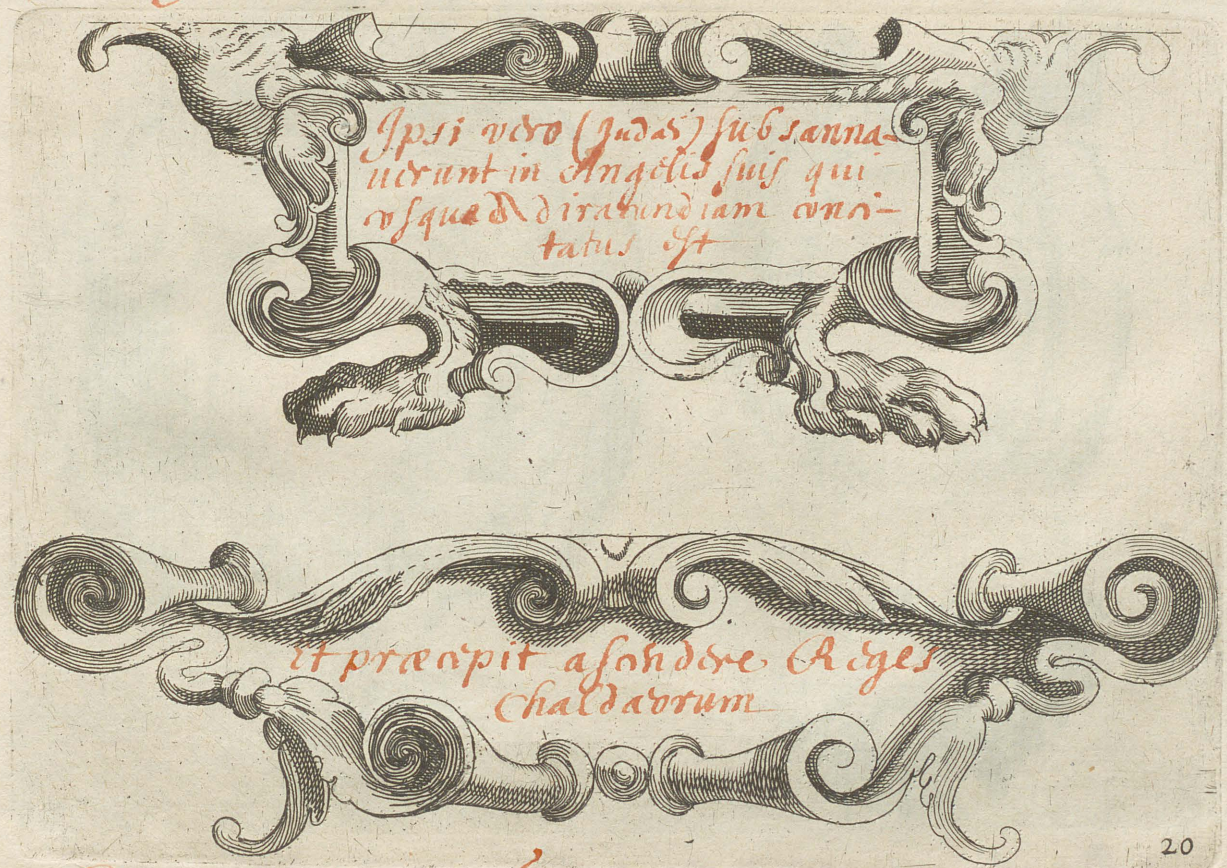 Ipsi vero (Judæi) subsanna-
verunt in Angelis suis qui
vsque ad iracundiam conci-
tatus est
et præcepit ascendere Reges
Chaldæorum
20